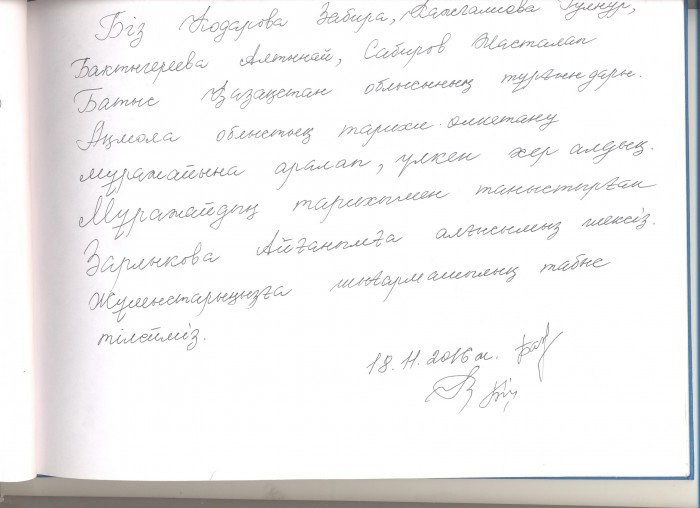 Біз Кодарова Забира, Гулнур,
Бактыгереева Алтынай, Сабиров Жасталап
Батыс Қазақстан облысының тұрғындары.
Ақмола облыстық тарихи-өлкетану
мұражайына аралап, үлкен әсер алдық.
Мұражайдың тарихымен таныстырған
Зарлыкова Айғанымға алғысымыз шексіз.
Жұмыстарыңызға шығармашылық табыс
тілейміз.
18.11.2016 ж.